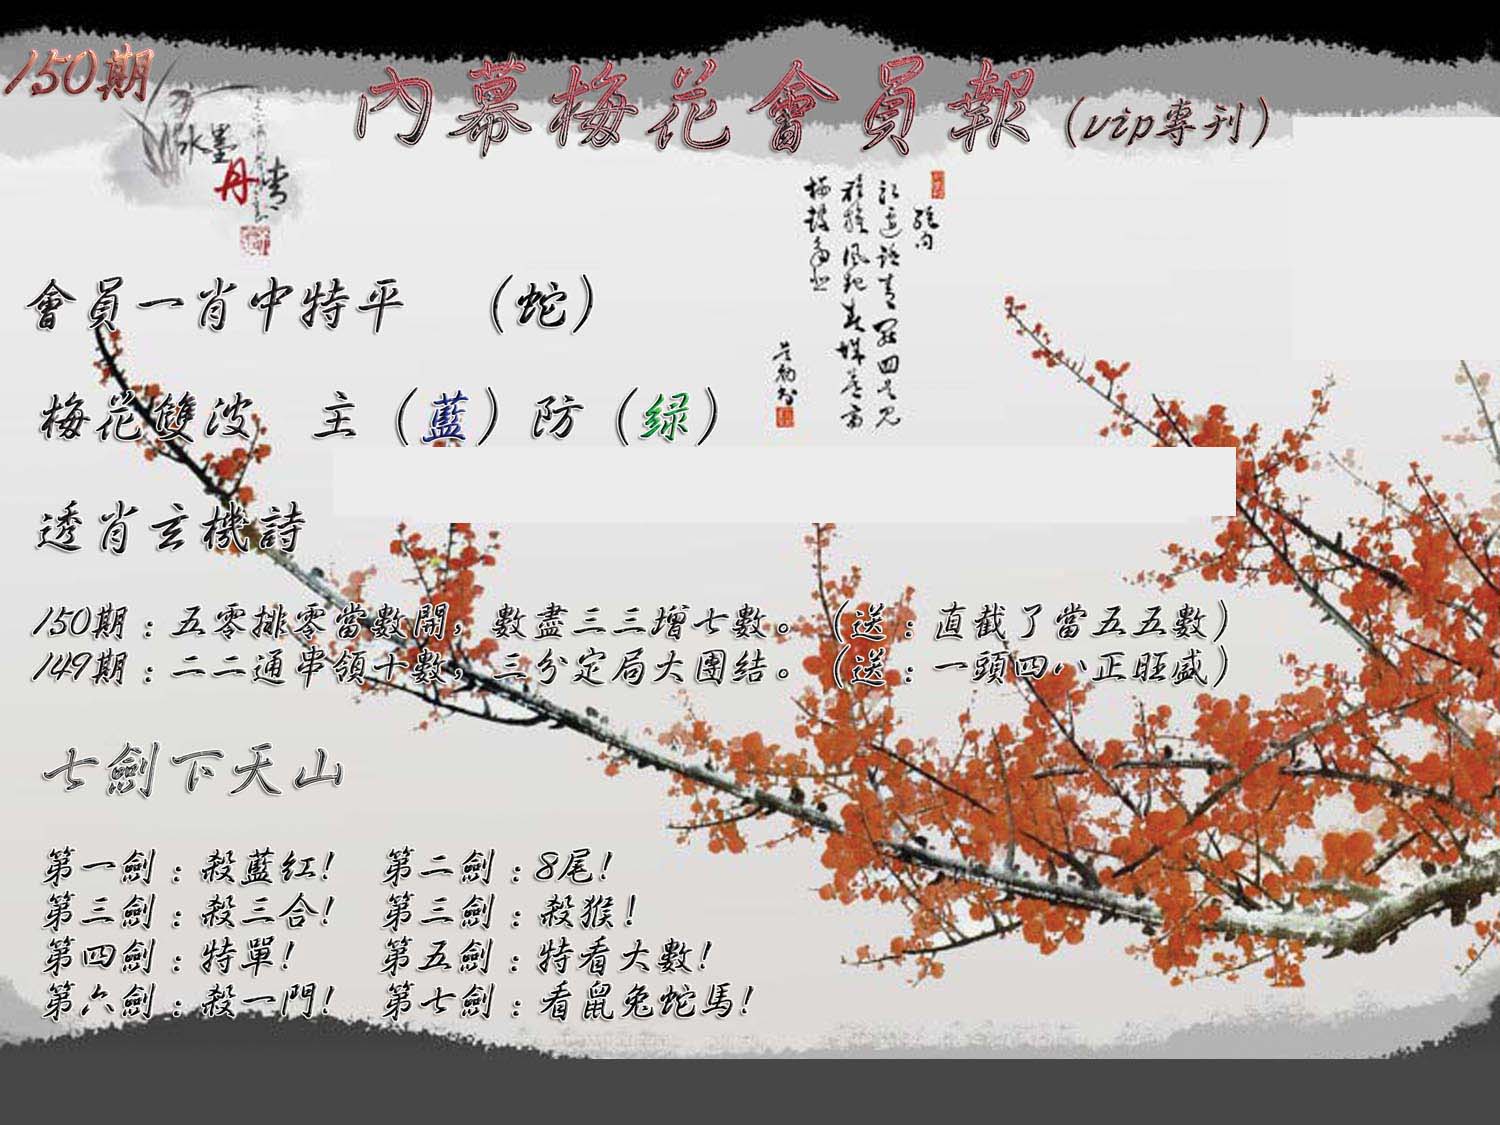 150期
內幕梅花會員報（vip專刊）
水墨
丹青
會員一肖中特平　（蛇）
梅花雙波　主（藍）防（绿）
透肖玄機詩
150期：五零排零當數開，數盡三三增七數。（送：直截了當五五數）
149期：二二通串領十數，三分定局大團结。（送：一頭四八正旺盛）
七劍下天山
第一劍：殺藍紅！　第二劍：8尾！
第三劍：殺三合！　第三劍：殺猴！
第四劍：特單！　第五劍：特看大數！
第六劍：殺一門！　第七劍：看鼠兔蛇馬！